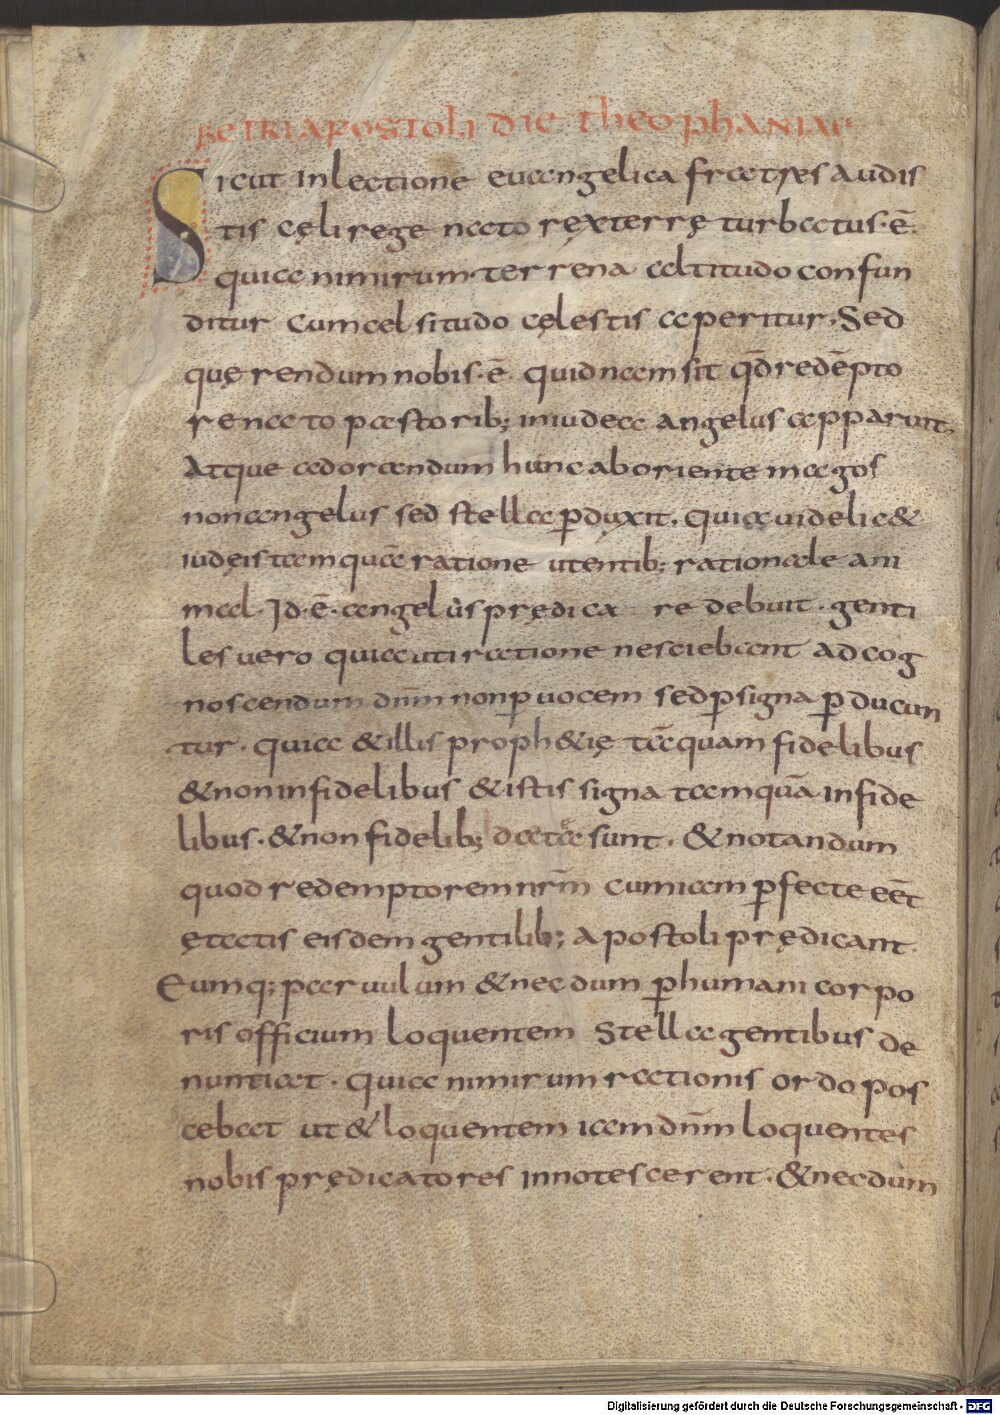 BEATRI APOSTOLI DIE THEOPHANIAE
Sicut in lectione euangelica fratres audis
tis cęli rege nato rex terrę turbatus · ē ·
quia nimirum terrena altitudo confun
ditur cum celsitudo cęlestis aperitur, Sed
quęrendum nobis · ē · quidnam sit qđ redēpto
re nato pastorib; in iudea angelus apparuit,
Atque adorandum hunc ab oriente magos
non angelus sed stella ꝑduxit, quia uidelic&
iudęis tamquā ratione utentib; rationale ani
mal · Id · ē · angelus prędica re debuit · genti
les uero quia uti ratione nesciebant ad cog
noscendum dn̄m non ꝑ uocem sed ꝑ signa ꝑducun
tur · quia & illis proph&ię tāquam fidelibus
& non infidelibus & istis signa tamquā infide
libus · & non fidelib; data sunt · & notandum
quod redemptorem nr̄m cum iam ꝑfecte eēt
ętatis eisdem gentilib; apostoli prędicant ·
Eumq; paruulum & necdum ꝑ humani corpo
ris officium loquentem Stella gentibus de
nuntiat · quia nimirum rationis ordo pos
cebat ut & loquentem iam dn̄m loquentes
nobis prędicatores innotescerent · & necdum
Digitalisierung gefördert durch die Deutsche Forschungsgemeinschaft - DFG